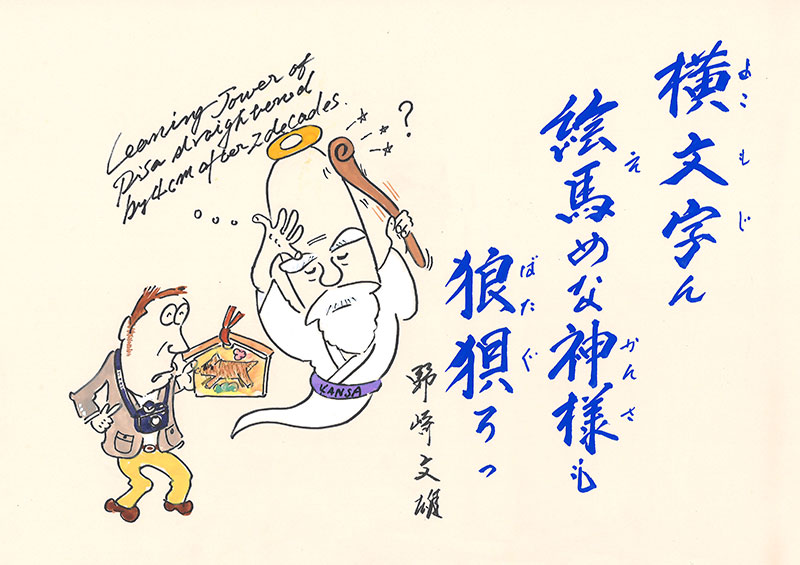 横文字ん
よこもじ
絵馬めな神様も
え かんさ
狼狽ろっ
ばたぐ
野崎文雄
Leaning Tower of
Pisa straightened
by 4cm after 2 decades.
?
KANSA